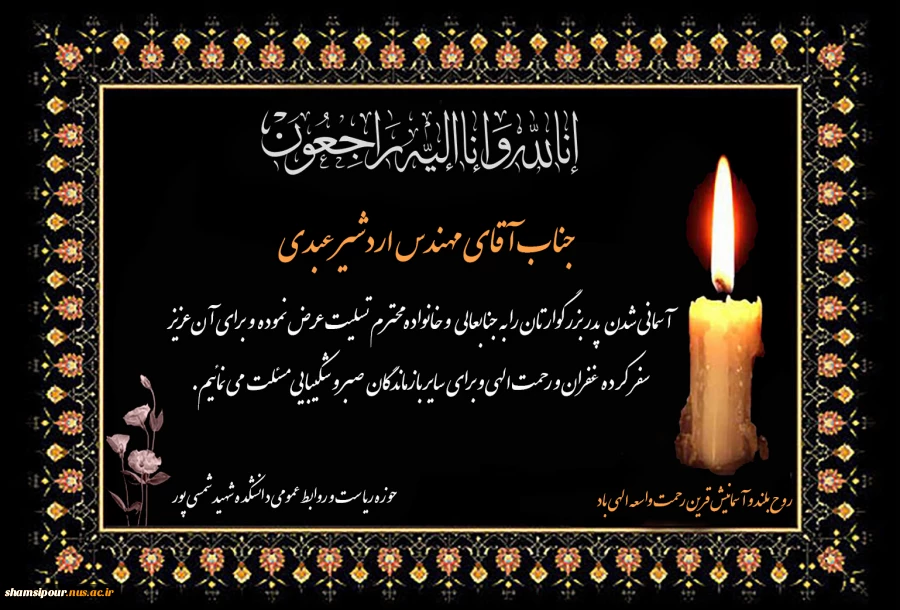 انا لله و انا الیه راجعون
جناب آقای مهندس اردشیر عبدی
آسمانی شدن پدر بزرگوارتان را به جنابعالی و خانواده محترم تسلیت عرض نموده و برای آن عزیز
سفر کرده غفران و رحمت الهی و برای سایر بازماندگان صبر و شکیبایی مسئلت می نمائیم .
روح بلند و آسمانیش قرین رحمت واسعه الهی باد
حوزه ریاست و روابط عمومی دانشکده شهید شمسی پور
shamsipour.nus.ac.ir